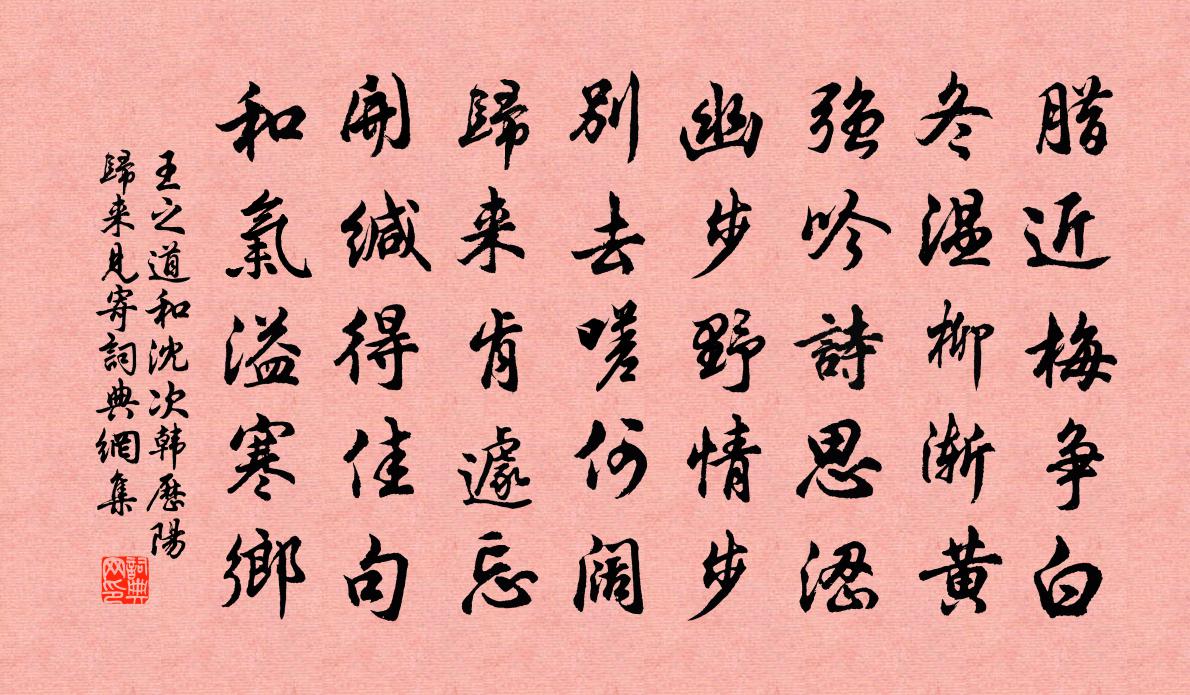 腊近梅争白
冬温柳渐黄
強吟詩思澀
幽步野情步
別去嗟何闊
歸来肯遽忘
開緘得佳句
和氣溢寒鄉
王之道和沈次韩歷陽
歸来見寄詞典網集
詞典
网印